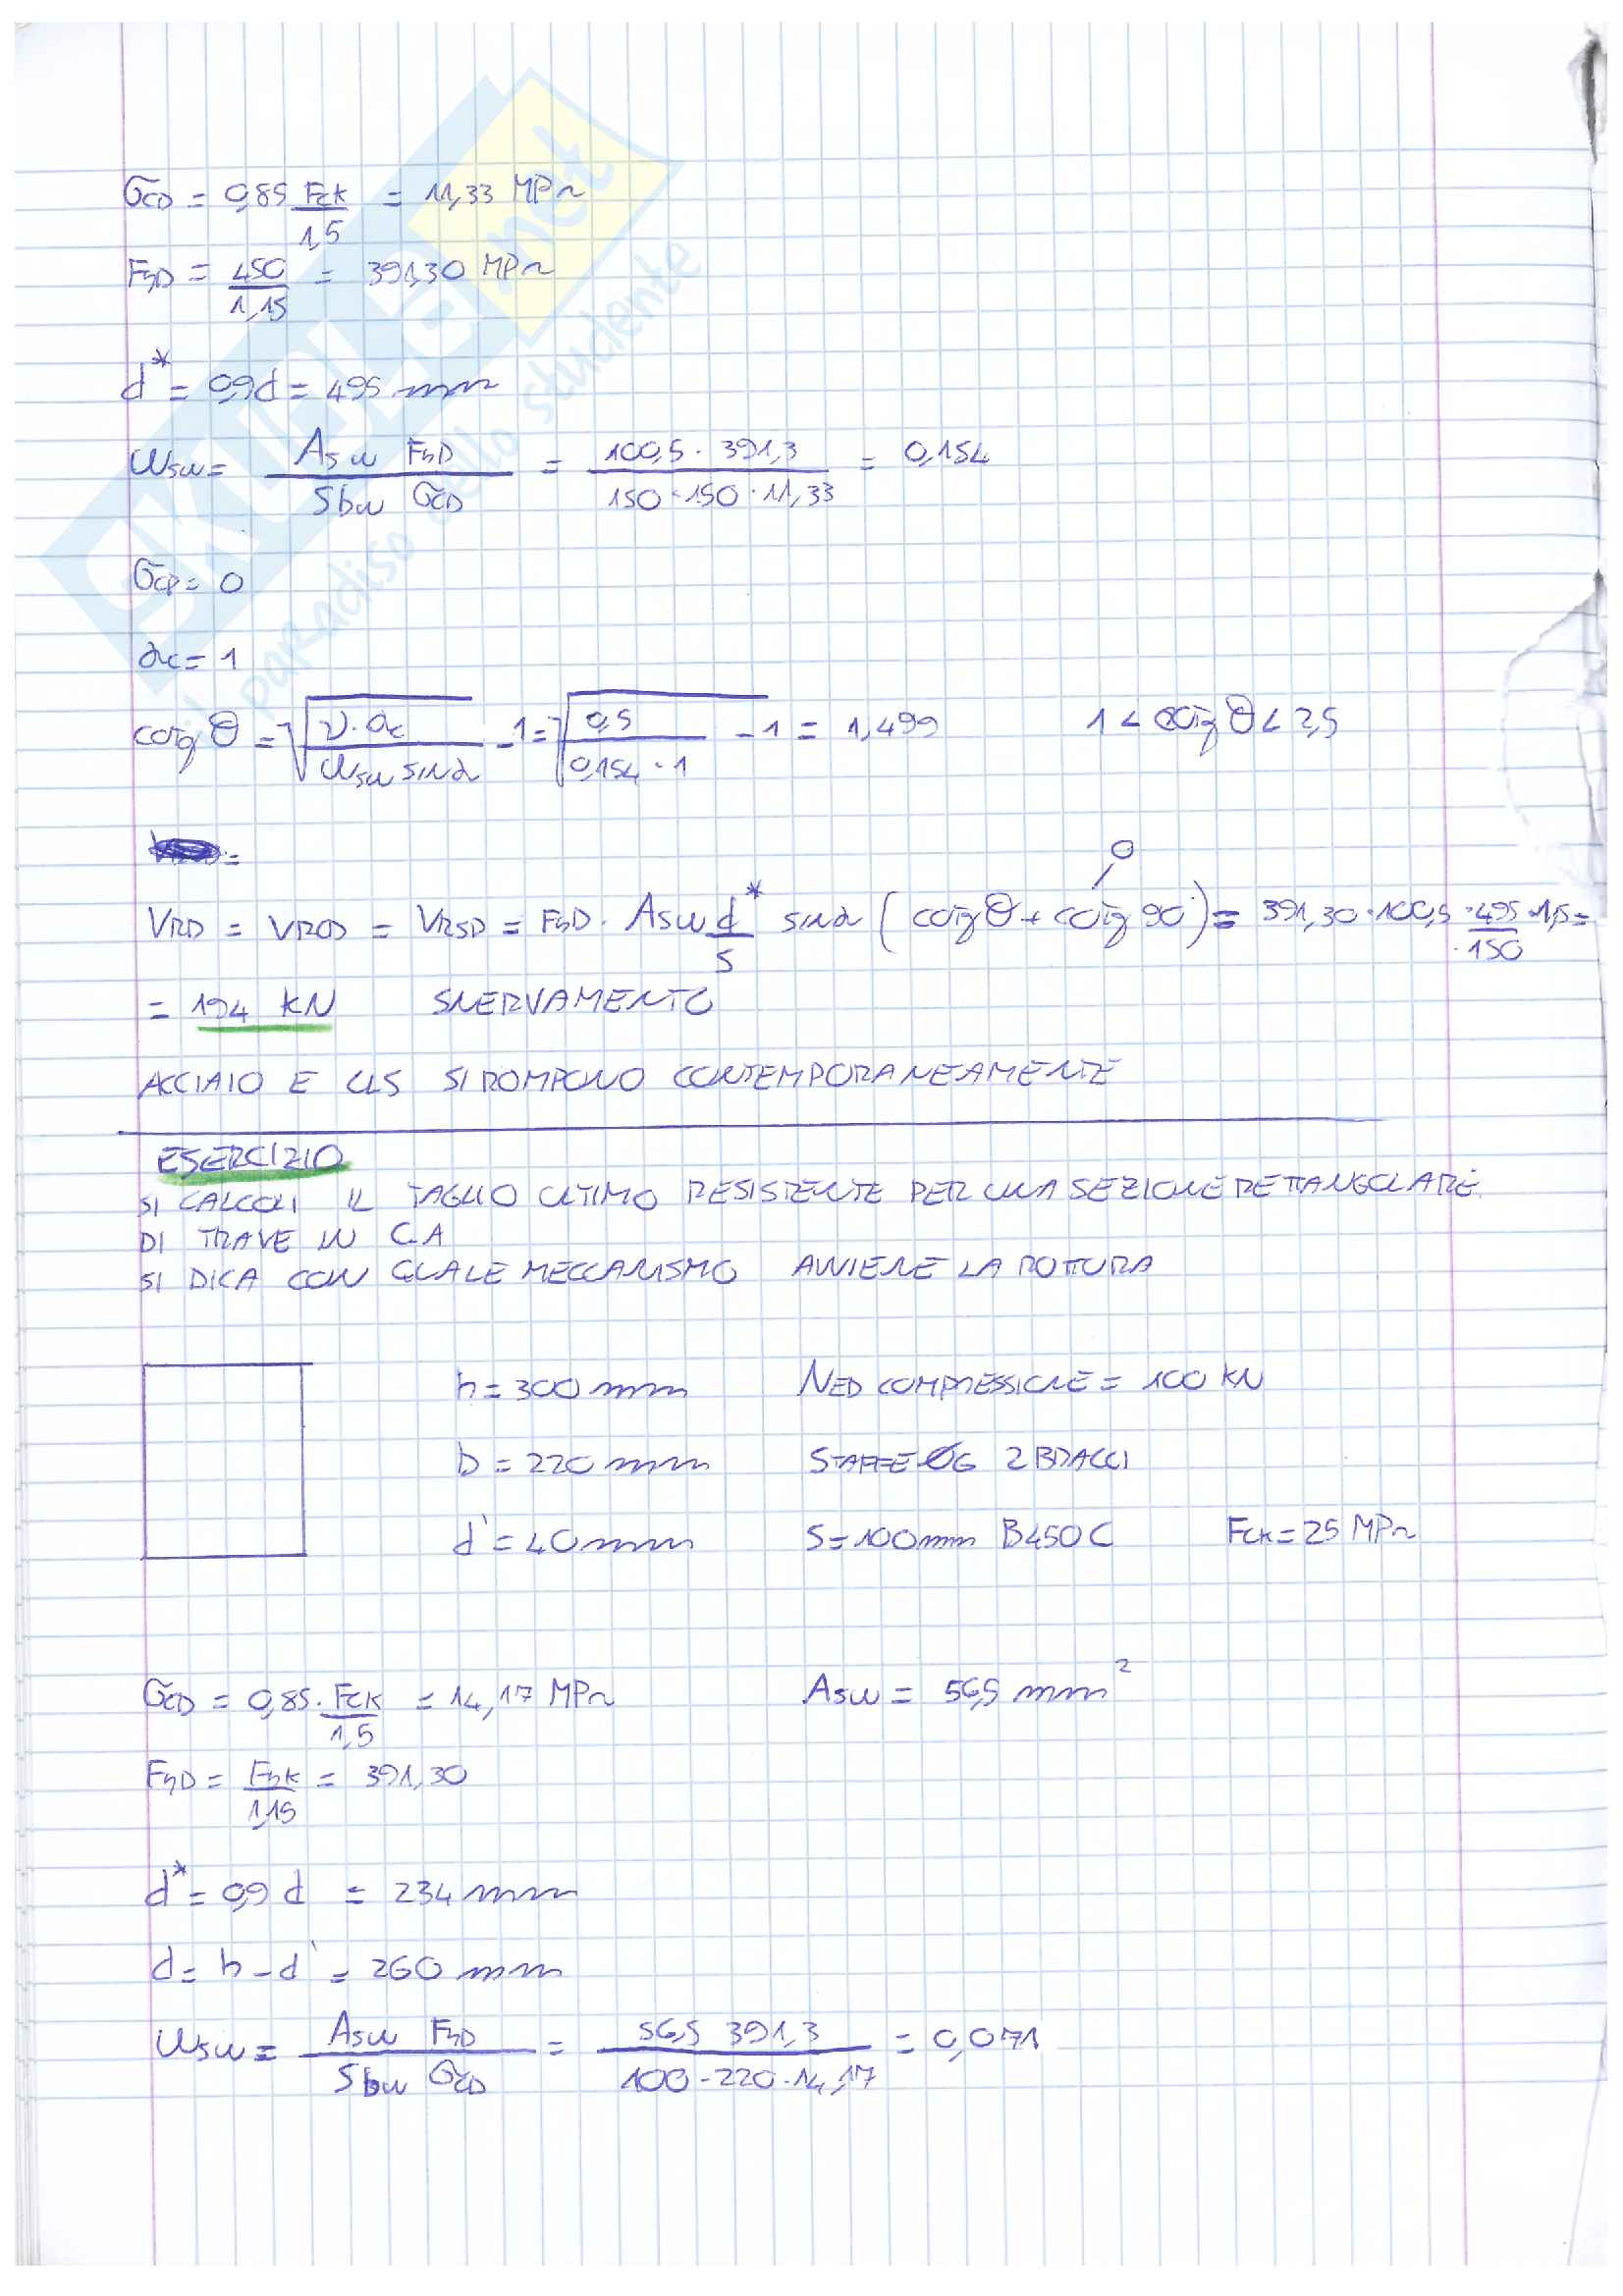 σCD = 0,85 Fck / 1,5 = 11,33 MPa
FyD = 450 / 1,15 = 391,30 MPa
d* = 0,9d = 495 mm
ωsw = Asw FyD / S bw σCD = 100,5 · 391,3 / 150 · 150 · 11,33 = 0,154
σcp = 0
αc = 1
cotg θ = √(ν · αc / ωsw sinα) - 1 = √(0,5 / 0,154 · 1) - 1 = 1,499 1 < cotg θ < 2,5
0
VRD = VRCD = VRSD = FyD · Asw d* / S sinα (cotg θ + cotg 90°) = 391,30 · 100,5 · 495 / 150 · 1,5 =
= 194 KN SNERVAMENTO
ACCIAIO E CLS SI ROMPONO CONTEMPORANEAMENTE
ESERCIZIO
SI CALCOLI IL TAGLIO ULTIMO RESISTENTE PER UNA SEZIONE RETTANGOLARE
DI TRAVE IN C.A
SI DICA CON QUALE MECCANISMO AVVIENE LA ROTTURA
h = 300 mm NED COMPRESSIONE = 100 KN
b = 220 mm STAFFE Ø6 2 BRACCI
d' = 40 mm S = 100 mm B450C Fck = 25 MPa
σCD = 0,85 · Fck / 1,5 = 14,17 MPa Asw = 56,5 mm²
FyD = Fyk / 1,15 = 391,30
d* = 0,9 d = 234 mm
d = h - d' = 260 mm
ωsw = Asw FyD / S bw σCD = 56,5 391,3 / 100 · 220 · 14,17 = 0,071
SKUOLA.net
il paradiso dello studente